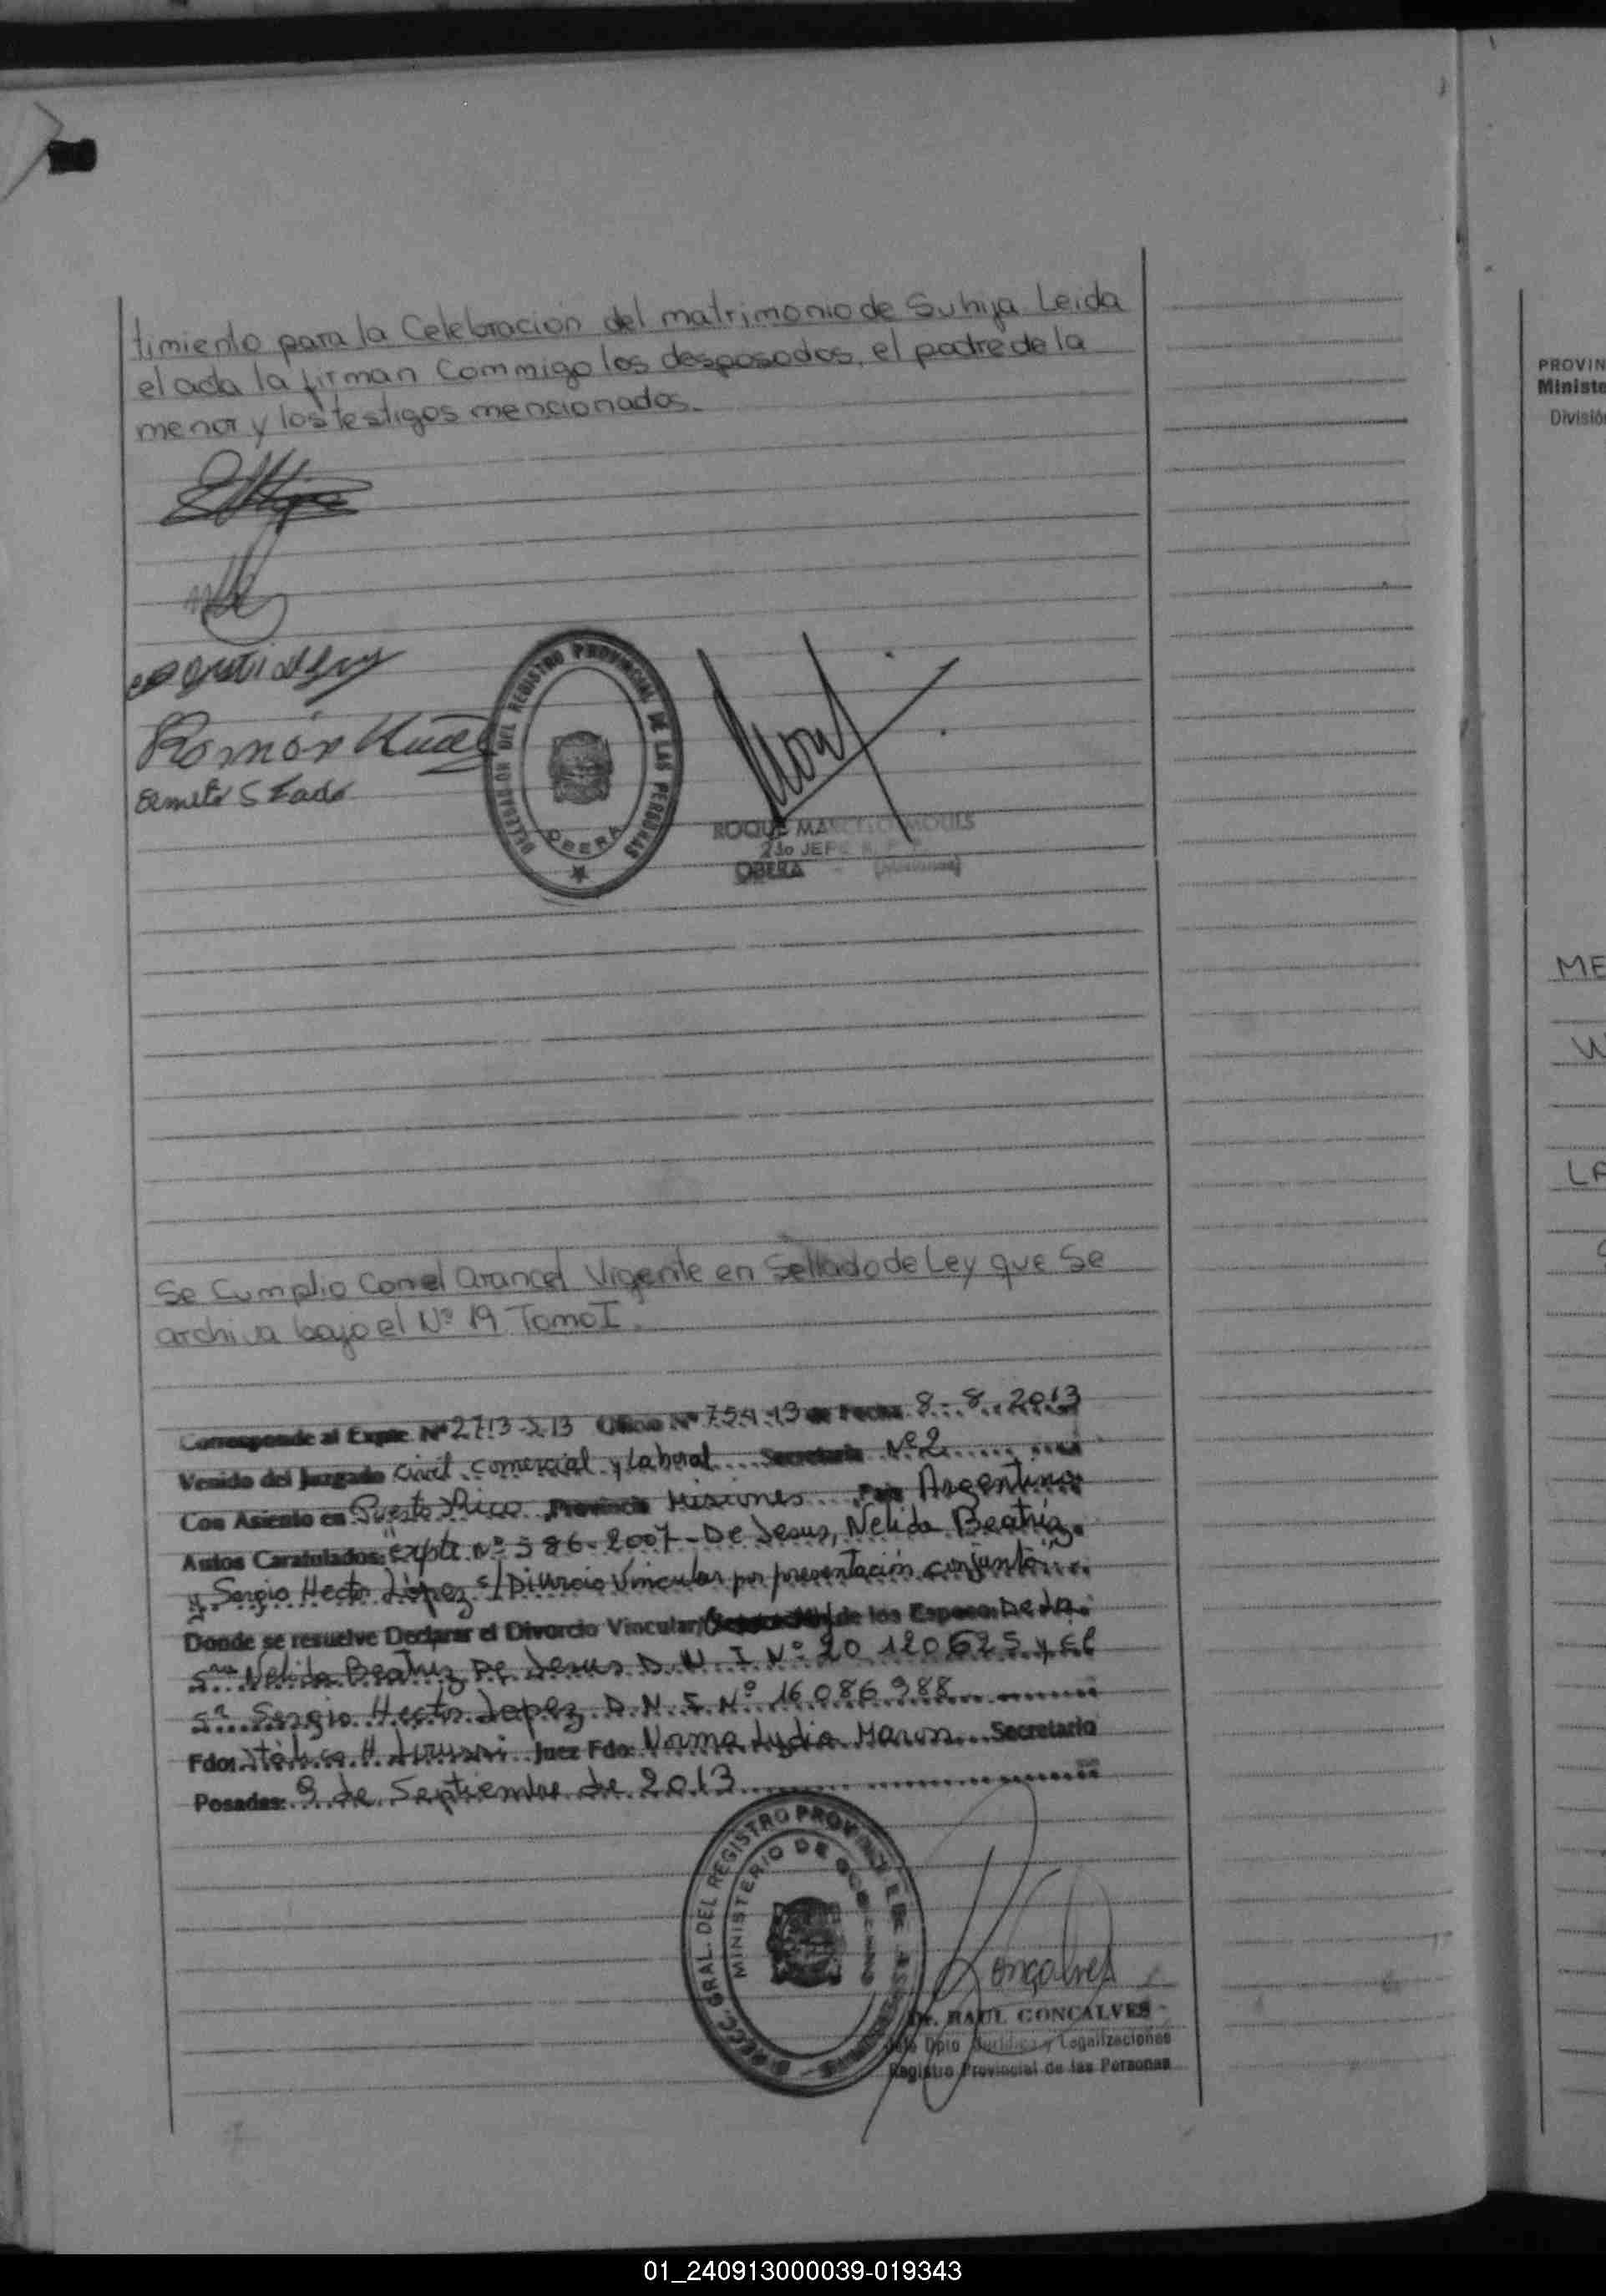 timiento para la Celebración del matrimonio de Su hija Leida
el acta la firman Commigo los desposados, el padre de la
menor y los testigos mencionados.-
Ramón
DELEGACION DEL REGISTRO PROVINCIAL DE LAS PERSONAS
OBERA
ROQUE MARCELO MOULS
2do JEFE R. P. P.
OBERA - (Misiones)
Se Cumplio Con el arancel Vigente en Sellado de Ley que Se
archiva bajo el Nº 19 Tomo I.
Corresponde al Expte. Nº 2713-S-13 Oficio Nº 754-13 de Fecha 8-8-2013
Venido del Juzgado Civil, Comercial y Laboral Secretaria Nº 2
Con Asiento en Puerto Rico, Provincia Misiones Pais Argentina
Autos Caratulados: Expte. Nº 586-2007 - De Jesus, Nelida Beatriz
y Sergio Hector López s/ Divorcio Vincular por presentación conjunta
Donde se resuelve Declarar el Divorcio Vincular de los Esposos De la
Sra Nelida Beatriz De Jesus D.N.I Nº 20 120 625 y el
Sr Sergio Hector Lopez D.N.I. Nº 16 086 988
Fdo: H. Juez Fdo: Norma Lydia Secretario
Posadas: 9 de Septiembre de 2013
DIRECC. GRAL. DEL REGISTRO PROVINCIAL DE LAS PERSONAS
MINISTERIO DE GOBIERNO
Gonçalves
Dr. RAUL GONCALVES
Jefe Dpto Jurídico y Legalizaciones
Registro Provincial de las Personas
PROVIN
Ministe
División
ME
W
LA
01_240913000039-019343